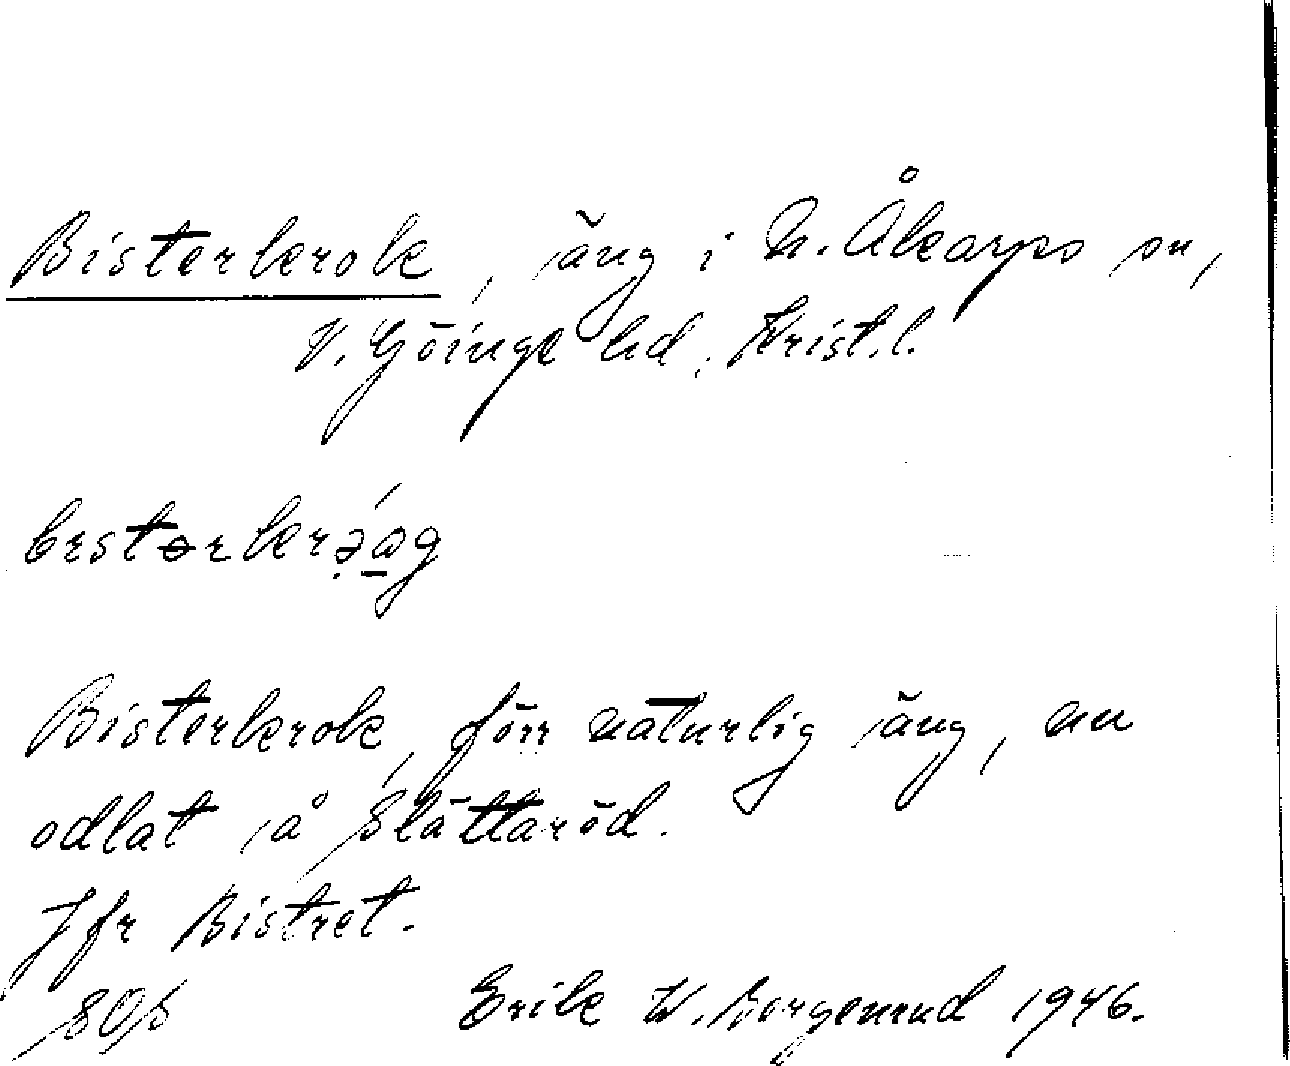 Bisterkrok, äng i N. Åkarps sn,
V. Göinge hd, Krist.l.
Bisterkrok, förr naturlig äng, nu
odlat, å Slättaröd.
Jfr Bistret.
Erik W. Borgenrud 1946.